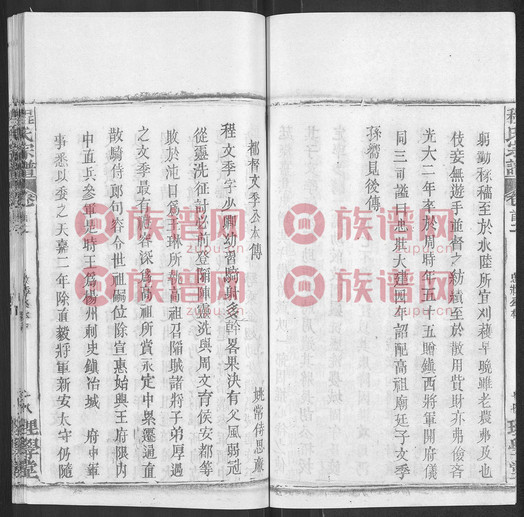 程氏宗譜
卷首之
理學堂
躬勤耘穡至於水陸所宜刈穫早晚雖老農弗及也
伎妾無遊手並督之紡績至於散用貲財亦弗儉吝
光大二年卒於周時年五十五贈鎮西將軍開府儀
同三司謚曰忠壯大建四年詔配高祖廟廷子文季
孫嚮見後傳
都督文季公本傳
姚常侍思廉
程文季字少卿幼習騎射多幹畧果決有父風弱冠
從靈洗征討必前登陷陣靈洗與周文育侯安都等
敗於沌口為王琳所執高祖召陷賊諸將子弟厚遇
之文季最有禮容深為高祖所賞永定中累遷通直
散騎侍郎句容令世祖嗣位除宣惠始興王府限內
中直兵參軍是時王為揚州刺史鎮冶城 府中軍
事悉以委之天嘉二年除貞毅將軍新安太守仍隨
程氏宗譜
卷首之
理學堂
族谱网
zupu.cn